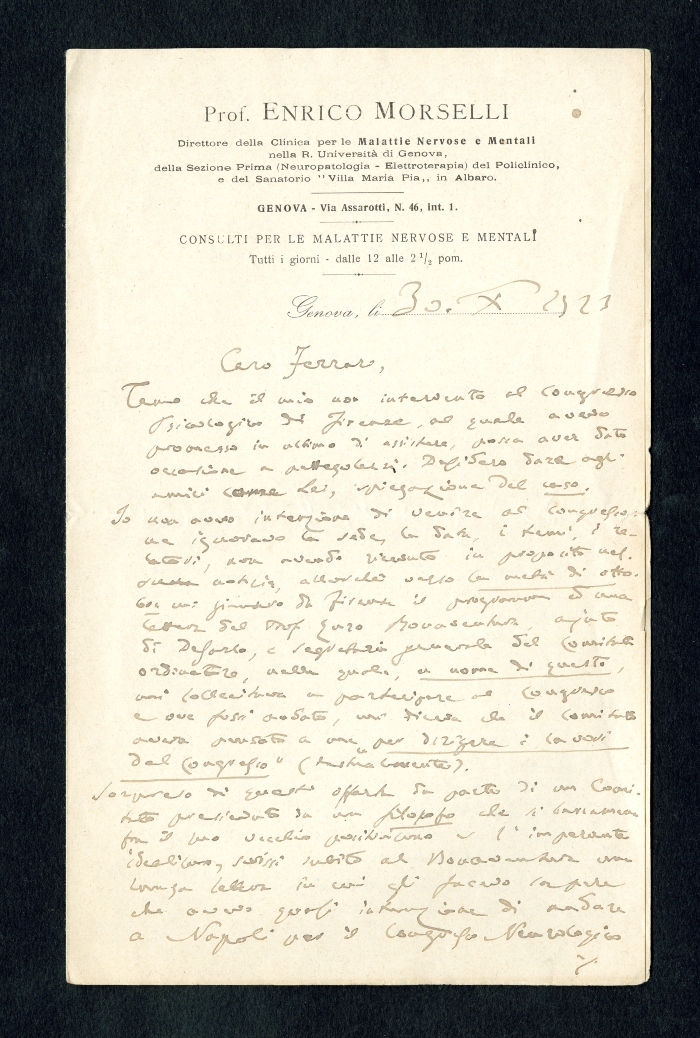 Prof. ENRICO MORSELLI
Direttore della Clinica per le Malattie Nervose e Mentali
nella R. Università di Genova,
della Sezione Prima (Neuropatologia - Elettroterapia) del Policlinico,
e del Sanatorio "Villa Maria Pia,, in Albaro.
GENOVA - Via Assarotti, N. 46, int. 1.
CONSULTI PER LE MALATTIE NERVOSE E MENTALI
Tutti i giorni - dalle 12 alle 2 1/2 pom.
Genova, li 30. X 1923
Caro Ferrari,
Temo che il mio non intervento al Congresso
Psicologico di Firenze, al quale avevo
promesso in ultimo di assistere, possa aver dato
occasione a pettegolezzi. Desidero dare agli
amici come Lei, spiegazione del caso.
Io non avevo intenzione di venire al Congresso,
ne ignoravo la sede, la data, i temi, i re-
latori, non avendo ricevuto in proposito nes-
suna notizia, allorché verso la metà di otto-
bre mi giunsero da Firenze il programma ed una
lettera del Prof. Enzo Bonaventura, ajuto
di De Sarlo, e segretario generale del Comitato
ordinatore, nella quale, a nome di questo,
mi sollecitava a partecipare al Congresso
e ove fossi andato, mi diceva che il Comitato
aveva pensato a me "per dirigere i lavori
del Congresso" (testualmente).
Sorpreso di questa offerta da parte di un Comi-
tato presieduto da un filosofo che si
fra il suo vecchio positivismo e l'imperante
idealismo, scrissi subito al Bonaventura una
lunga lettera in cui gli facevo sapere
che avevo quasi intenzione di andare
a Napoli per il Congresso Neurologico